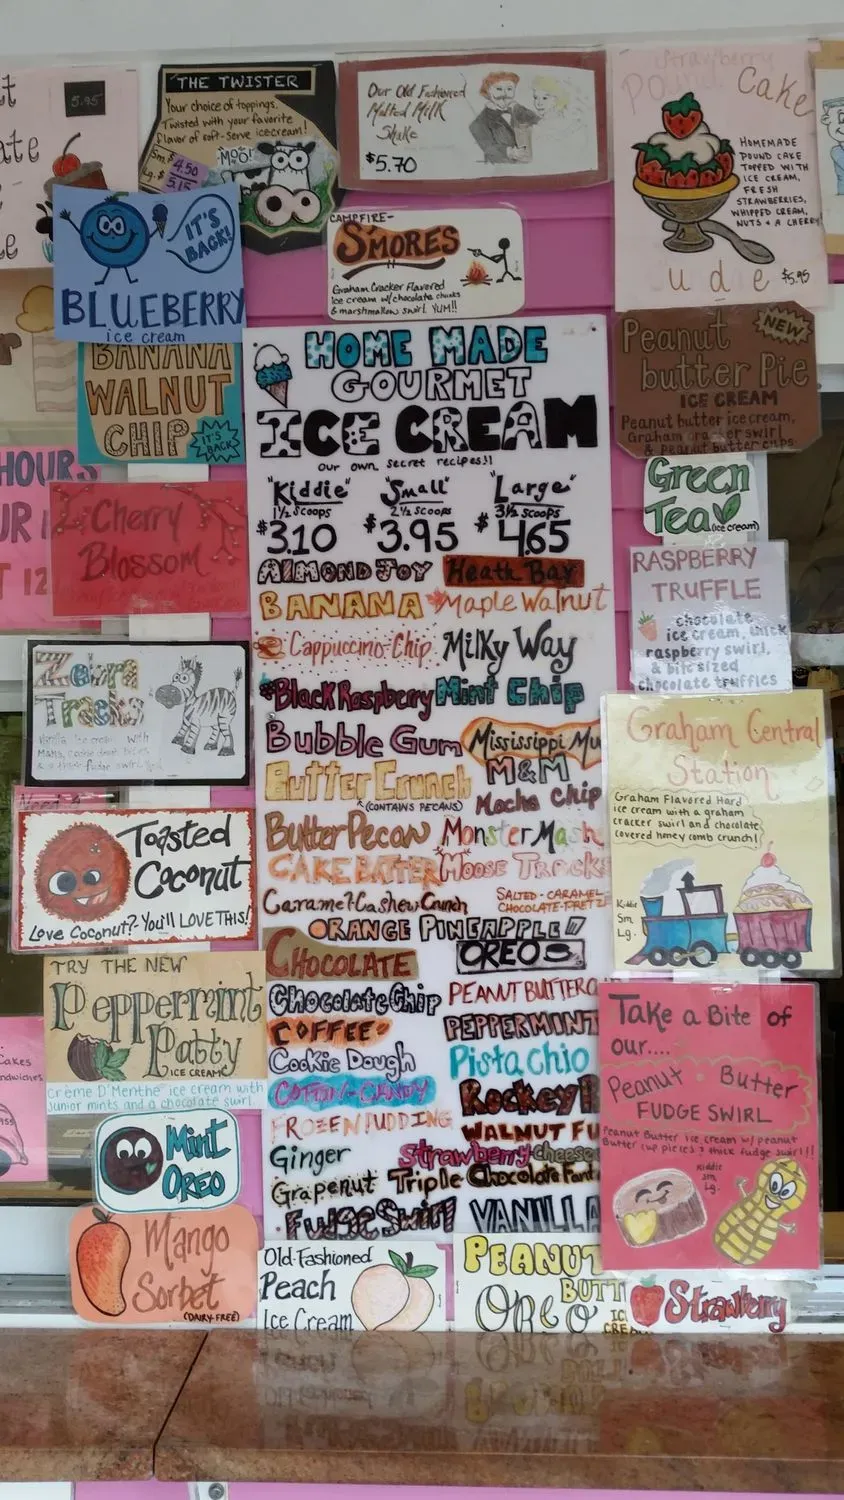 5.95
THE TWISTER
Your choice of toppings,
Twisted with your favorite
flavor of soft-serve ice cream!
Sm. $4.50
Lg. $5.15
MOO!
Our Old Fashioned
Malted Milk
Shake
$5.70
Strawberry
Pound Cake
HOMEMADE
POUND CAKE
TOPPED WITH
ICE CREAM,
FRESH
STRAWBERRIES,
WHIPPED CREAM,
NUTS & A CHERRY
$5.95
IT'S
BACK!
BLUEBERRY
ice cream
CAMPFIRE-
S'MORES
Graham Cracker Flavored
Ice cream w/chocolate chunks
& marshmallow swirl YUM!!
BANANA
WALNUT
CHIP
IT'S
BACK
NEW
Peanut
butter Pie
ICE CREAM
Peanut butter ice cream,
Graham cracker swirl
& peanut butter cups
HOME MADE
GOURMET
ICE CREAM
our own secret recipes!!
"Kiddie" "Small" "Large"
1½ scoops 2½ scoops 3½ scoops
$3.10 $3.95 $4.65
ALMOND JOY Heath Bar
BANANA Maple Walnut
Cappuccino-Chip Milky Way
Black Raspberry Mint Chip
Bubble Gum Mississippi Mu
Butter Crunch M&M
(CONTAINS PECANS) Mocha Chip
Butter Pecan Monster Mash
CAKE BATTER Moose Tracks
Caramel-Cashew Crunch SALTED-CARAMEL-
CHOCOLATE-PRETZ
ORANGE PINEAPPLE
CHOCOLATE OREO
Chocolate Chip PEANUT BUTTER
COFFEE PEPPERMINT
Cookie Dough Pistachio
COTTON-CANDY Rockey R
FROZEN PUDDING WALNUT FU
Ginger Strawberry cheese
Grapenut Triple Chocolate Fant
Fudge Swirl VANILLA
HOURS
Cherry
Blossom
Green
Tea (ice cream)
RASPBERRY
TRUFFLE
chocolate
ice cream, thick
raspberry swirl,
& bite sized
chocolate truffles
Zebra
Tracks
Vanilla ice cream with
Graham Central
Station
Graham Flavored Hard
ice cream with a graham
cracker swirl and chocolate
covered honey comb crunch!
Kiddie
Sm.
Lg.
Toasted
Coconut
Love Coconut?-You'll LOVE THIS!
TRY THE NEW
Peppermint
Patty
ICE CREAM
Crème D'Menthe ice cream with
junior mints and a chocolate swirl
Take a Bite of
our....
Peanut Butter
FUDGE SWIRL
Peanut Butter ice cream w/ peanut
Butter cup pieces & thick fudge swirl!!!
Kiddie
sm.
Lg.
Mint
OREO
Mango
Sorbet
(DAIRY-FREE)
Old-Fashioned
Peach
Ice Cream
PEANUT
BUTT
OREO
Strawberry